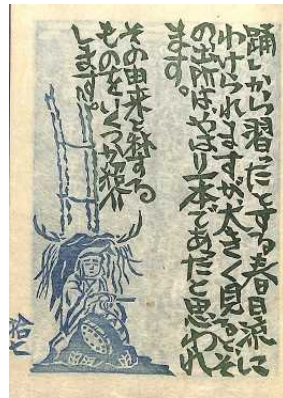 踊いから習ったとする春日流に
わけられますが、大きく見るとそ
の出所はやはり一本であだと思われ
ます。
その由来と称する
ものをいくつか紹介
します。